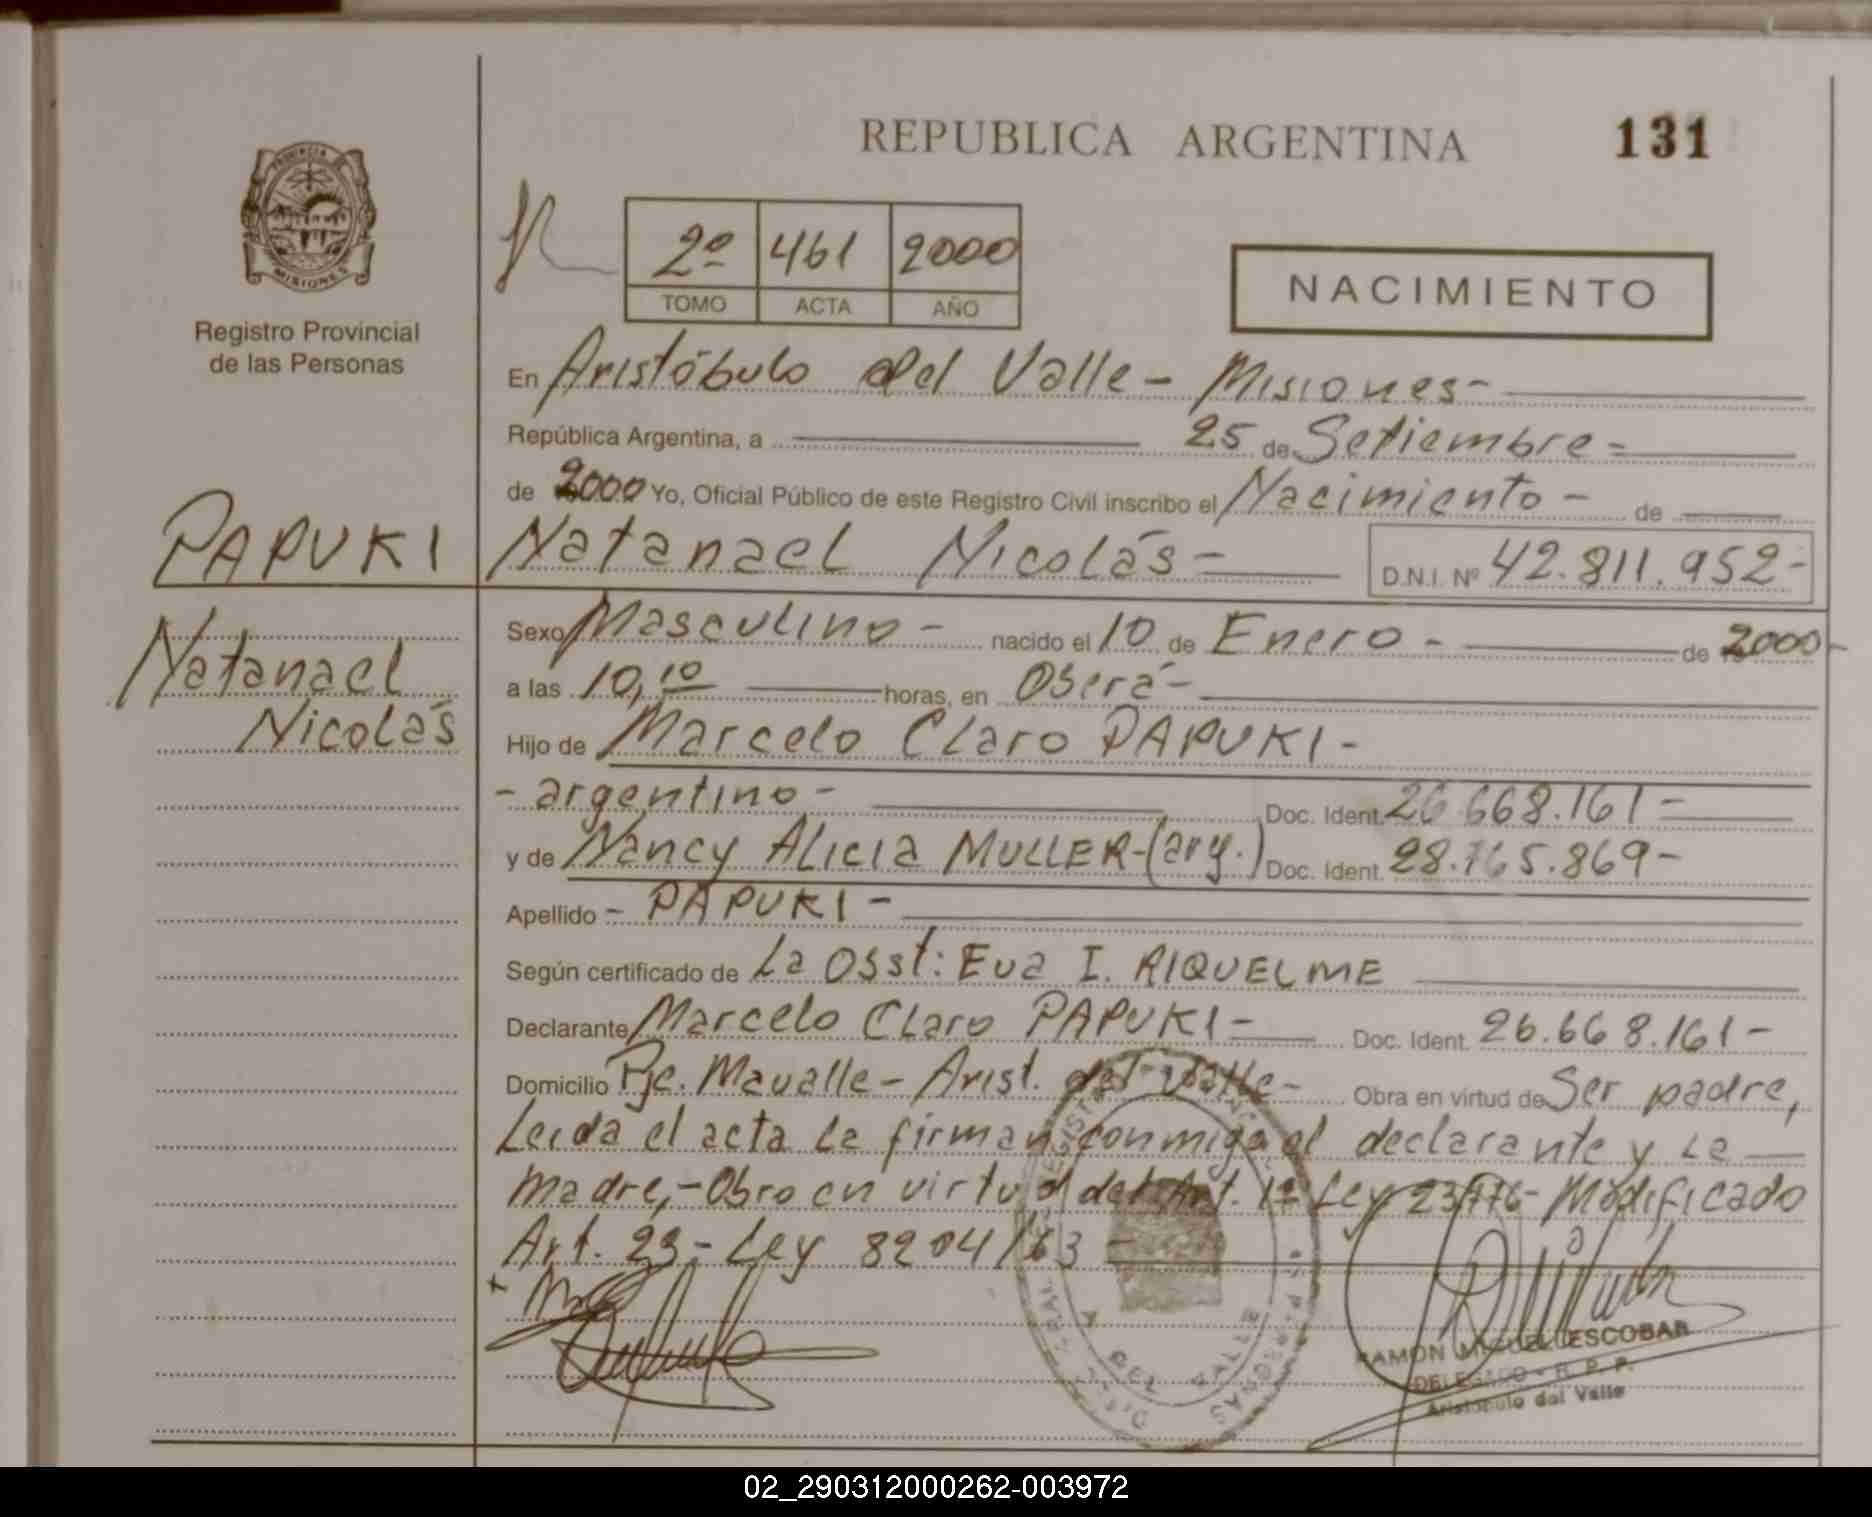 REPUBLICA ARGENTINA
131
PROVINCIA DE
MISIONES
Registro Provincial
de las Personas
2º 461 2000
TOMO ACTA AÑO
NACIMIENTO
En Aristóbulo del Valle - Misiones -
República Argentina, a 25 de Setiembre =
de 2000 Yo, Oficial Público de este Registro Civil inscribo el Nacimiento - de
PAPUKI
Natanael Nicolás -
D.N.I. Nº 42.811.952-
Natanael
Nicolás
Sexo Masculino - nacido el 10 de Enero - de 2000-
a las 10,10 horas, en Oberá -
Hijo de Marcelo Claro PAPUKI -
- argentino - Doc. Ident. 26.668.161 -
y de Nancy Alicia MULLER - (arg.) Doc. Ident. 28.765.869 -
Apellido - PAPUKI -
Según certificado de La Obst: Eva I. RIQUELME
Declarante Marcelo Claro PAPUKI - Doc. Ident. 26.668.161 -
Domicilio Pje. Mavalle - Arist. del Valle - Obra en virtud de Ser padre,
Leida el acta la firman conmigo el declarante y la
madre, - Obro en virtud del Art. 1º Ley 23776 - Modificado
Art. 23 - Ley 8204/63 -
RAMON MIGUEL ESCOBAR
DELEGADO - R. P. P.
Aristobulo del Valle
DEL VALLE
02_290312000262-003972